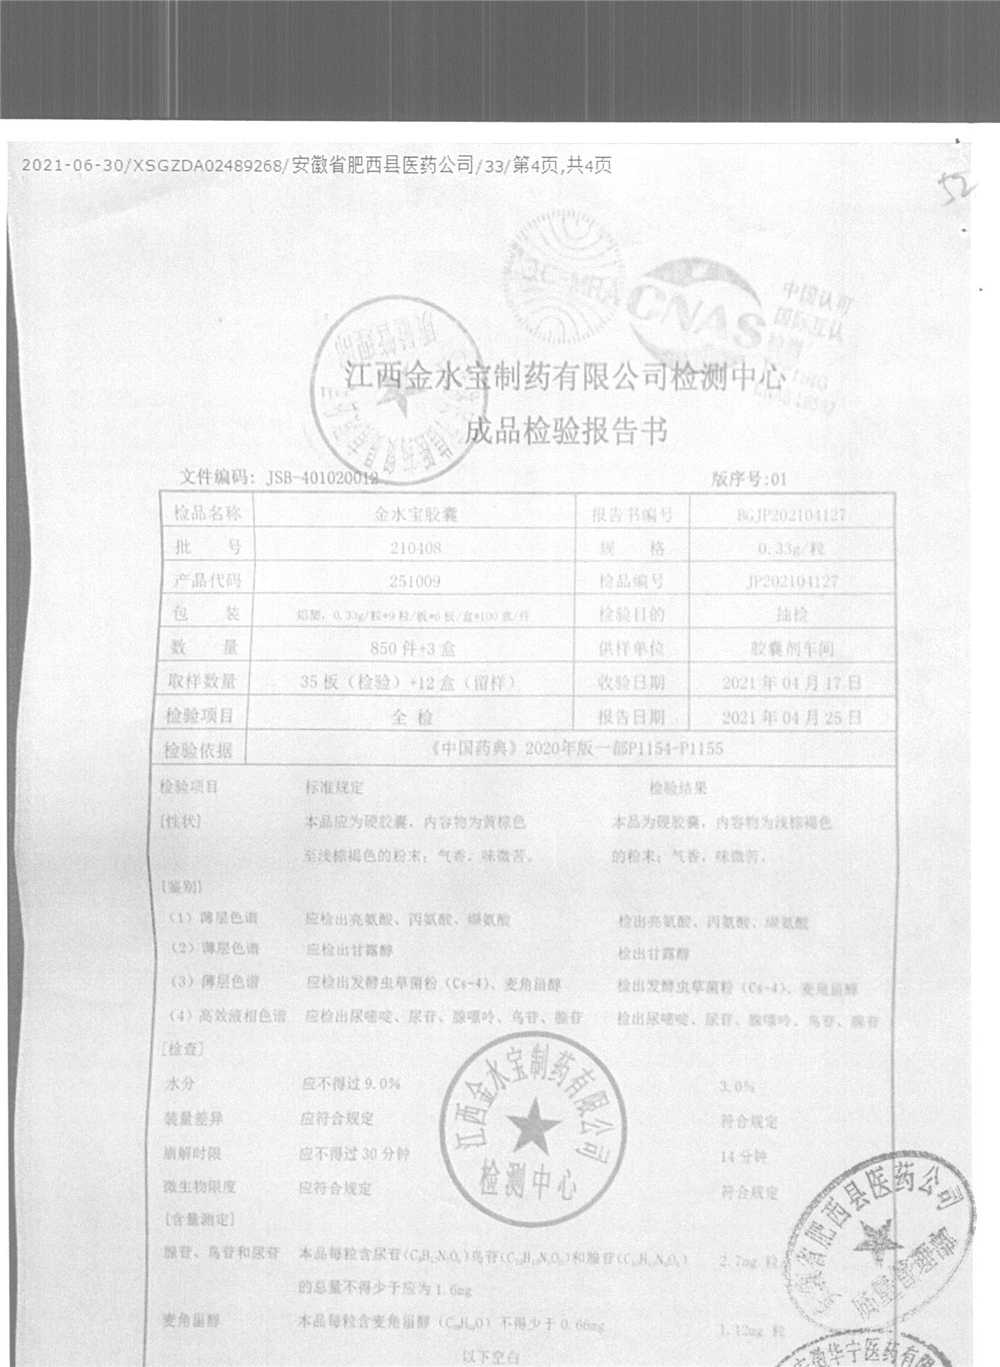 2021-06-30/XSGZDA02489268/安徽省肥西县医药公司/33/第4页,共4页
52
CNAS
中国认可
国际互认
江西金水宝制药有限公司检测中心
成品检验报告书
文件编码: JSB-401020012
版序号:01
检品名称 金水宝胶囊 报告书编号 BGJP202104127
批 号 210408 规 格 0.33g/粒
产品代码 251009 检品编号 JP202104127
包 装 铝塑, 0.33g/粒*9粒/板*6板/盒*100盒/件 检验目的 抽检
数 量 850件+3盒 供样单位 胶囊剂车间
取样数量 35板（检验）+12盒（留样） 收验日期 2021年04月17日
检验项目 全 检 报告日期 2021年04月25日
检验依据 《中国药典》2020年版一部P1154-P1155
检验项目 标准规定 检验结果
[性状] 本品应为硬胶囊，内容物为黄棕色 本品为硬胶囊，内容物为浅棕褐色
至浅棕褐色的粉末；气香，味微苦。 的粉末；气香，味微苦。
[鉴别]
（1）薄层色谱 应检出亮氨酸、丙氨酸、缬氨酸 检出亮氨酸、丙氨酸、缬氨酸
（2）薄层色谱 应检出甘露醇 检出甘露醇
（3）薄层色谱 应检出发酵虫草菌粉（Cs-4）、麦角甾醇 检出发酵虫草菌粉（Cs-4）、麦角甾醇
（4）高效液相色谱 应检出尿嘧啶、尿苷、腺嘌呤、鸟苷、腺苷 检出尿嘧啶、尿苷、腺嘌呤、鸟苷、腺苷
[检查]
水分 应不得过9.0% 3.0%
装量差异 应符合规定 符合规定
崩解时限 应不得过30分钟 14分钟
微生物限度 应符合规定 符合规定
江西金水宝制药有限公司
检测中心
[含量测定]
腺苷、鸟苷和尿苷 本品每粒含尿苷 鸟苷 和腺苷 2.7mg 粒
的总量不得少于应为1.6mg
麦角甾醇 本品每粒含麦角甾醇 不得少于0.66mg 1.12mg 粒
以下空白
安徽省肥西县医药公司
质量管理部
安徽华宁医药有